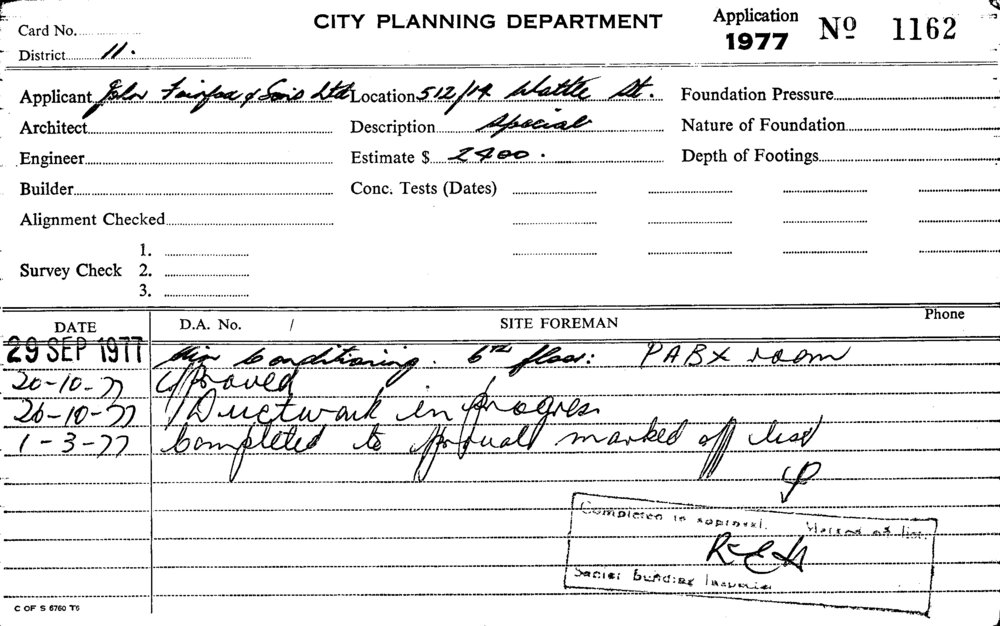 Card No.
CITY PLANNING DEPARTMENT
Application 1977 No 1162
District 11.
Applicant John Fairfax & Sons Ltd Location 512/14 Wattle St. Foundation Pressure
Architect Description Special Nature of Foundation
Engineer Estimate $ 2400. Depth of Footings
Builder Conc. Tests (Dates)
Alignment Checked
1.
Survey Check 2.
3.
DATE D.A. No. / SITE FOREMAN Phone
29 SEP 1977 Air Conditioning. 6TH floor: PABX room
20-10-77 Approved
26-10-77 Ductwork in progress
1-3-77 Completed to approval marked off list
Completed to approval. Marked off list.
REH
Senior Building Inspector
C OF S 6760 T6